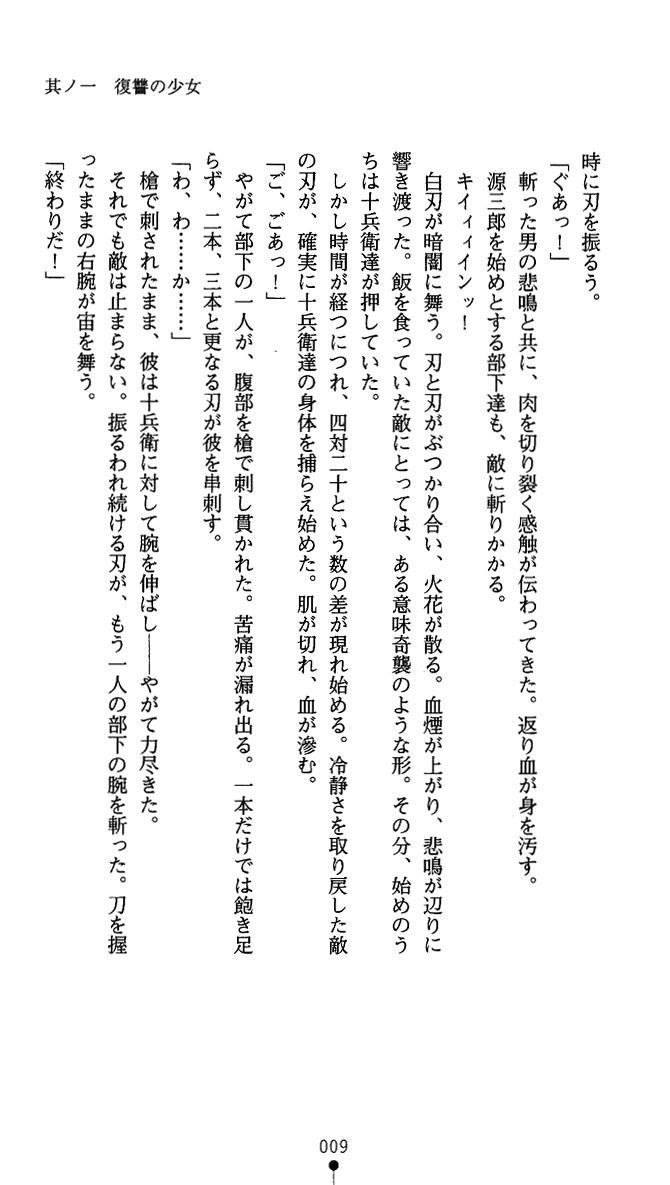 其ノ一　復讐の少女
時に刃を振るう。
「ぐあっ！」
斬った男の悲鳴と共に、肉を切り裂く感触が伝わってきた。返り血が身を汚す。
源三郎を始めとする部下達も、敵に斬りかかる。
キイィィインッ！
白刃が暗闇に舞う。刃と刃がぶつかり合い、火花が散る。血煙が上がり、悲鳴が辺りに
響き渡った。飯を食っていた敵にとっては、ある意味奇襲のような形。その分、始めのう
ちは十兵衛達が押していた。
しかし時間が経つにつれ、四対二十という数の差が現れ始める。冷静さを取り戻した敵
の刃が、確実に十兵衛達の身体を捕らえ始めた。肌が切れ、血が滲む。
「ご、ごあっ！」
やがて部下の一人が、腹部を槍で刺し貫かれた。苦痛が漏れ出る。一本だけでは飽き足
らず、二本、三本と更なる刃が彼を串刺す。
「わ、わ……か……」
槍で刺されたまま、彼は十兵衛に対して腕を伸ばし――やがて力尽きた。
それでも敵は止まらない。振るわれ続ける刃が、もう一人の部下の腕を斬った。刀を握
ったままの右腕が宙を舞う。
「終わりだ！」
009